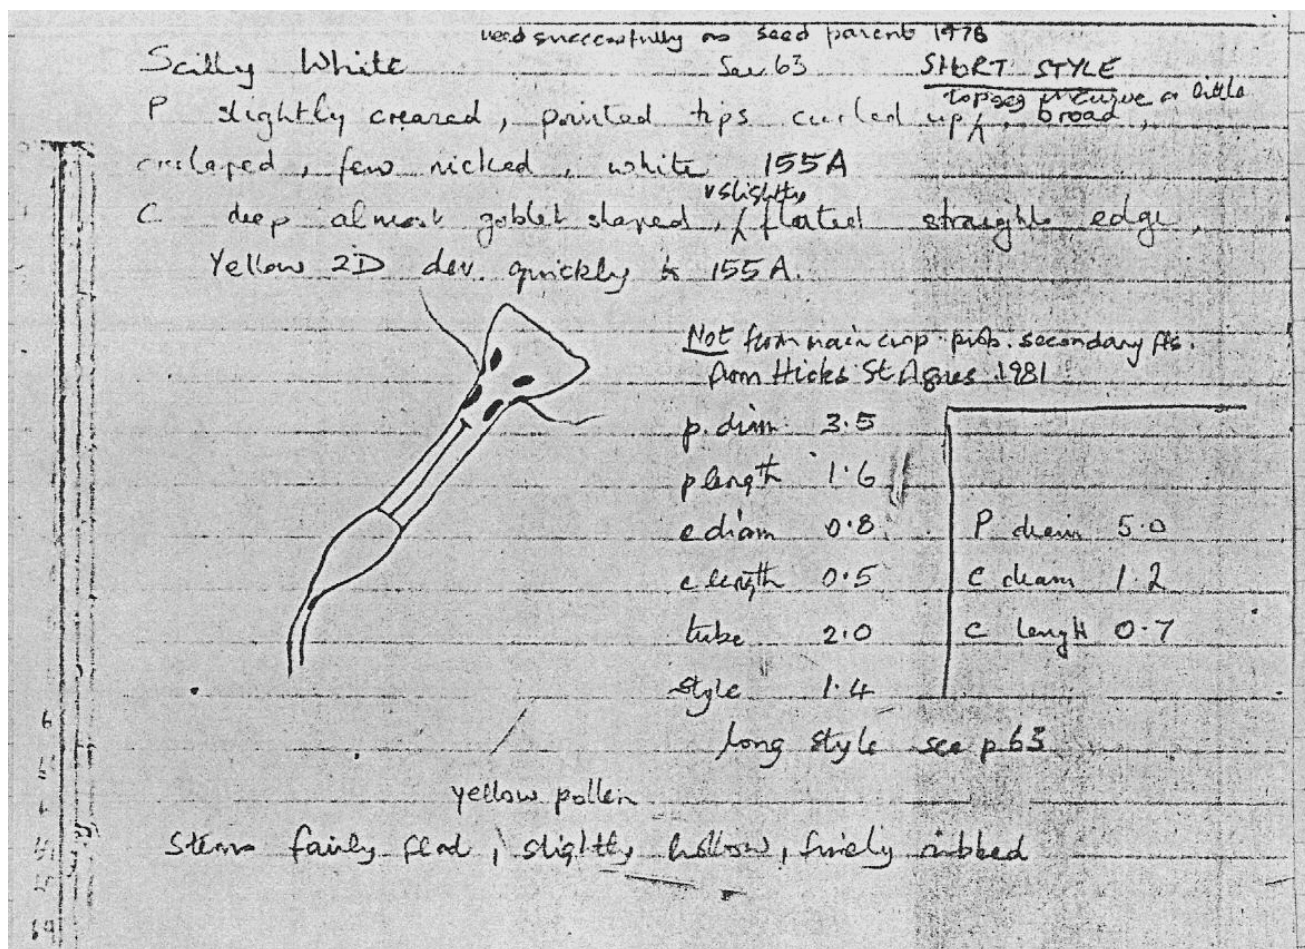 used successfully as seed parent 1978
Scilly White See 63 SHORT STYLE
top seg incurve a little
P slightly creased, pointed tips curled up, broad,
ovrlaped, few nicked, white 155A
v slightly
C deep almost goblet shaped, fluted straight edge,
Yellow 2D dev. quickly to 155A.
Not from main crop prob. secondary fls.
from Hicks St Agnes 1981
p. diam. 3.5
p length 1.6
c diam 0.8 P diam 5.0
c length 0.5 C diam 1.2
tube 2.0 C lengh 0.7
style 1.4
long style see p 63
yellow pollen
Stem fairly flat, slightly hollow, finely ribbed